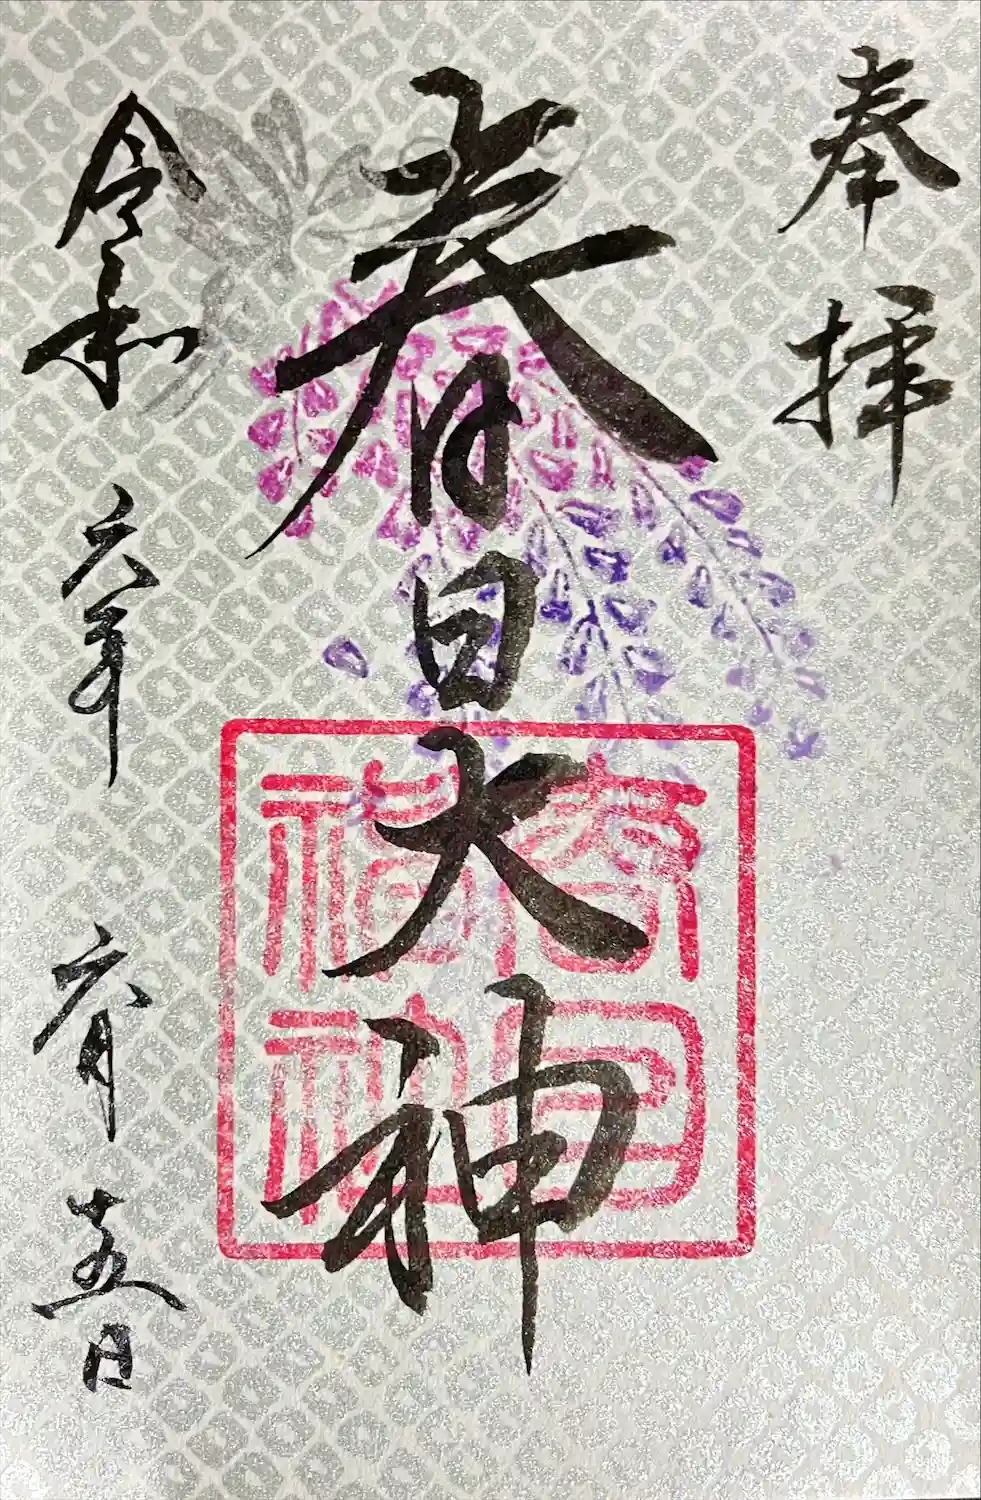 奉拝
春日大神
春日神社
令和六年六月十五日